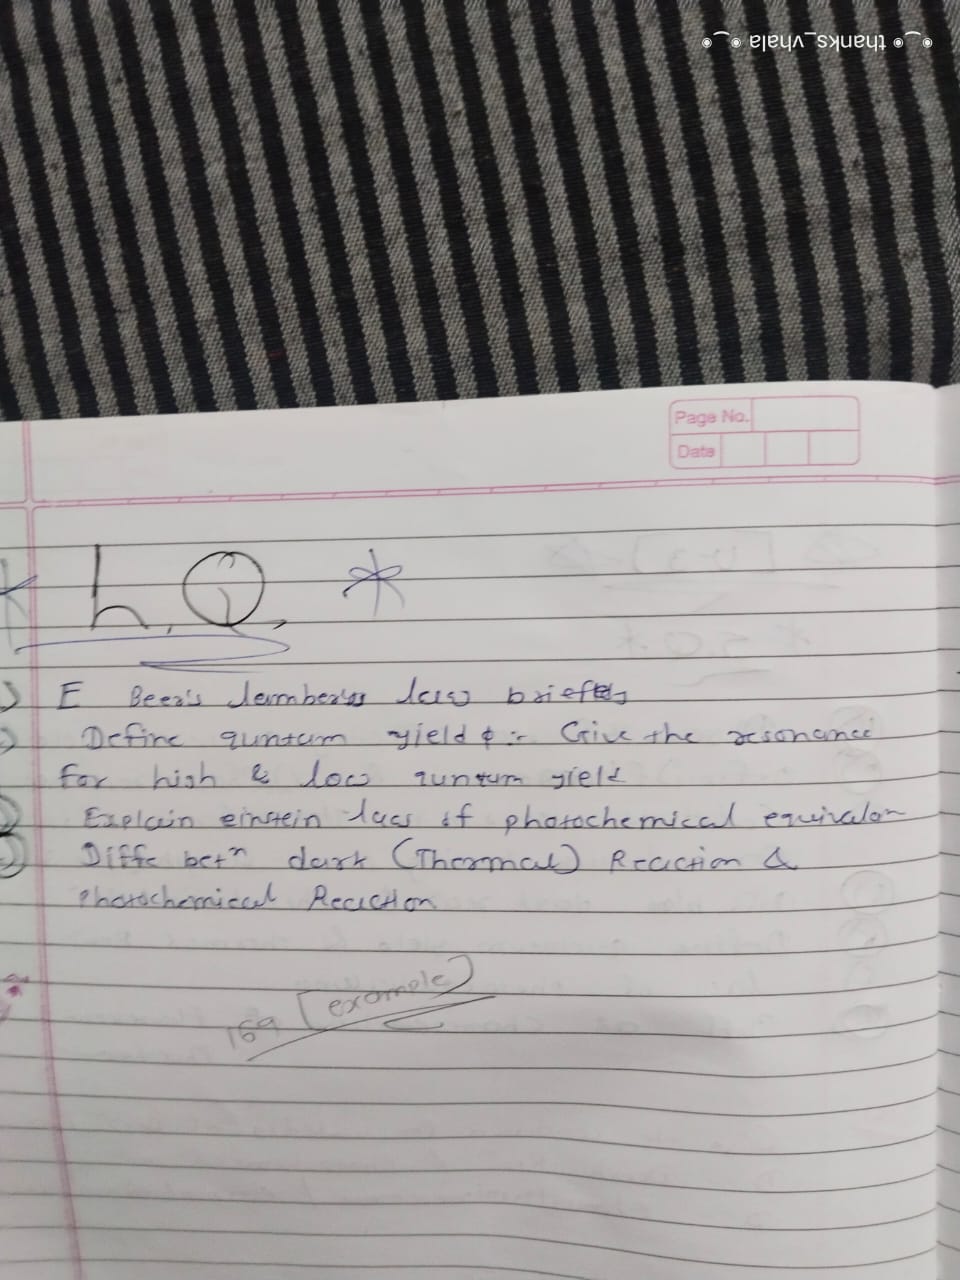 ◉‿◉ thanks_vhala ◉‿◉
Page No.
Date
* L.Q. *
E Beer's lamber's law briefly
Define quntum yield φ :- Give the resonance
for high & low quntum yield
Explain einstein law of photochemical equivalen
Diffe betn dark (Thermal) Reaction &
Photochemical Reaction
169 [example]